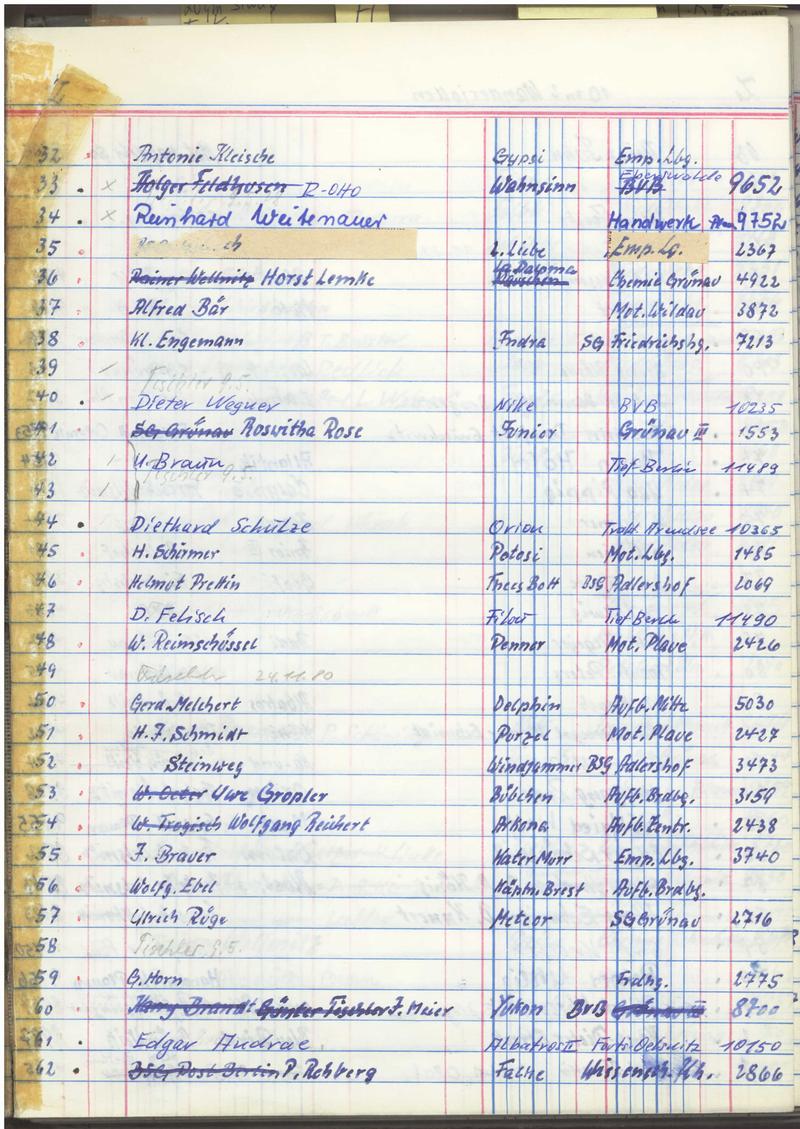 32 Antonie Kleische Gypsi Emp. Lbg.
33 x Holger Feldhusen R-OHO Wahnsinn BVB Eberswalde 9652
34 x Reinhard Weitenauer Handwerk 9752
35 ch L. Liebe Emp. Lg. 2367
36 Rainer Wellnitz Horst Lemke La Paloma Chemie Grünau 4922
37 Alfred Bär Mot. Wildau 3872
38 Kl. Engemann Indra SG Friedrichshg. 7213
39 Tischler 9.5.
40 Dieter Wegner Nike BVB 10235
41 SG Grünau Roswitha Rose Junior Grünau III 1553
42 U. Braun Tief Berlin 11489
43 Tischler 9.5.
44 Diethard Schulze Orion Arendsee 10365
45 H. Schirmer Potosi Mot. Lbg. 1485
46 Helmut Prettin Thees Bott BSG Adlershof 2069
47 D. Felisch Filou Tief Berlin 11490
48 W. Reimschüssel Penner Mot. Plaue 2426
49 Tischler 24.11.80
50 Gerd. Melchert Delphin Aufb. Mitte 5030
51 H. J. Schmidt Purzel Mot. Plaue 2427
52 Steinweg Windjammer BSG Adlershof 3473
53 W. Oeter Uwe Gropler Bübchen Aufb. Brdbg. 3159
54 W. Trogisch Wolfgang Reichert Arkona Aufb. Zentr. 2438
55 J. Brauer Kater Murr Emp. Lbg. 3740
56 Wolfg. Ebel Käptn. Brest Aufb. Brdbg.
57 Ulrich Röge Meteor SG Grünau 2716
58 Tischler, 9.5.
59 G. Horn Frdhg. 2775
60 Harry Brandt Günter Tischler J. Meier Yukon BVB Grünau III 8700
61 Edgar Andrae Albatros II Forts. Oelsnitz 10150
62 BSG Post Berlin P. Rehberg Fache Wissensch. 2866